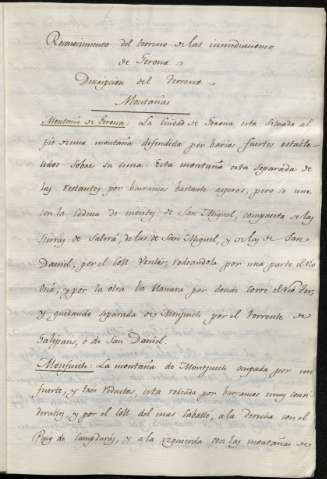 Reconocimiento del terreno de las inmediaciones
de Gerona
Descripcion del Terreno
Montañas
Montaña de Gerona: La Ciudad de Gerona esta Situada al
pie de una montaña defendida por barios fuertes estable
cidos sobre su cima. Esta montaña esta separada de
las restantes por barrancos bastante asperos, pero se une
con la cadena de montes de San Miguel, compuesta de las
Sierras de de las de San Miguel, y de las de San
Daniel, por el Coll rodeandola por una parte el Rio
Oñá, y por la otra la llanura por donde corre el Rio Ter,
y quedando separada de Monjuich por el Torrente de
Galigans, o de San Daniel.
Monjuich: La montaña de Montjuich ocupada por un
fuerte, y tres reductos, esta rodeada por barrancos muy consi-
derables, y por el Coll del mas Caballé, a la derecha con el
Puig de y a la izquierda con las montañas de